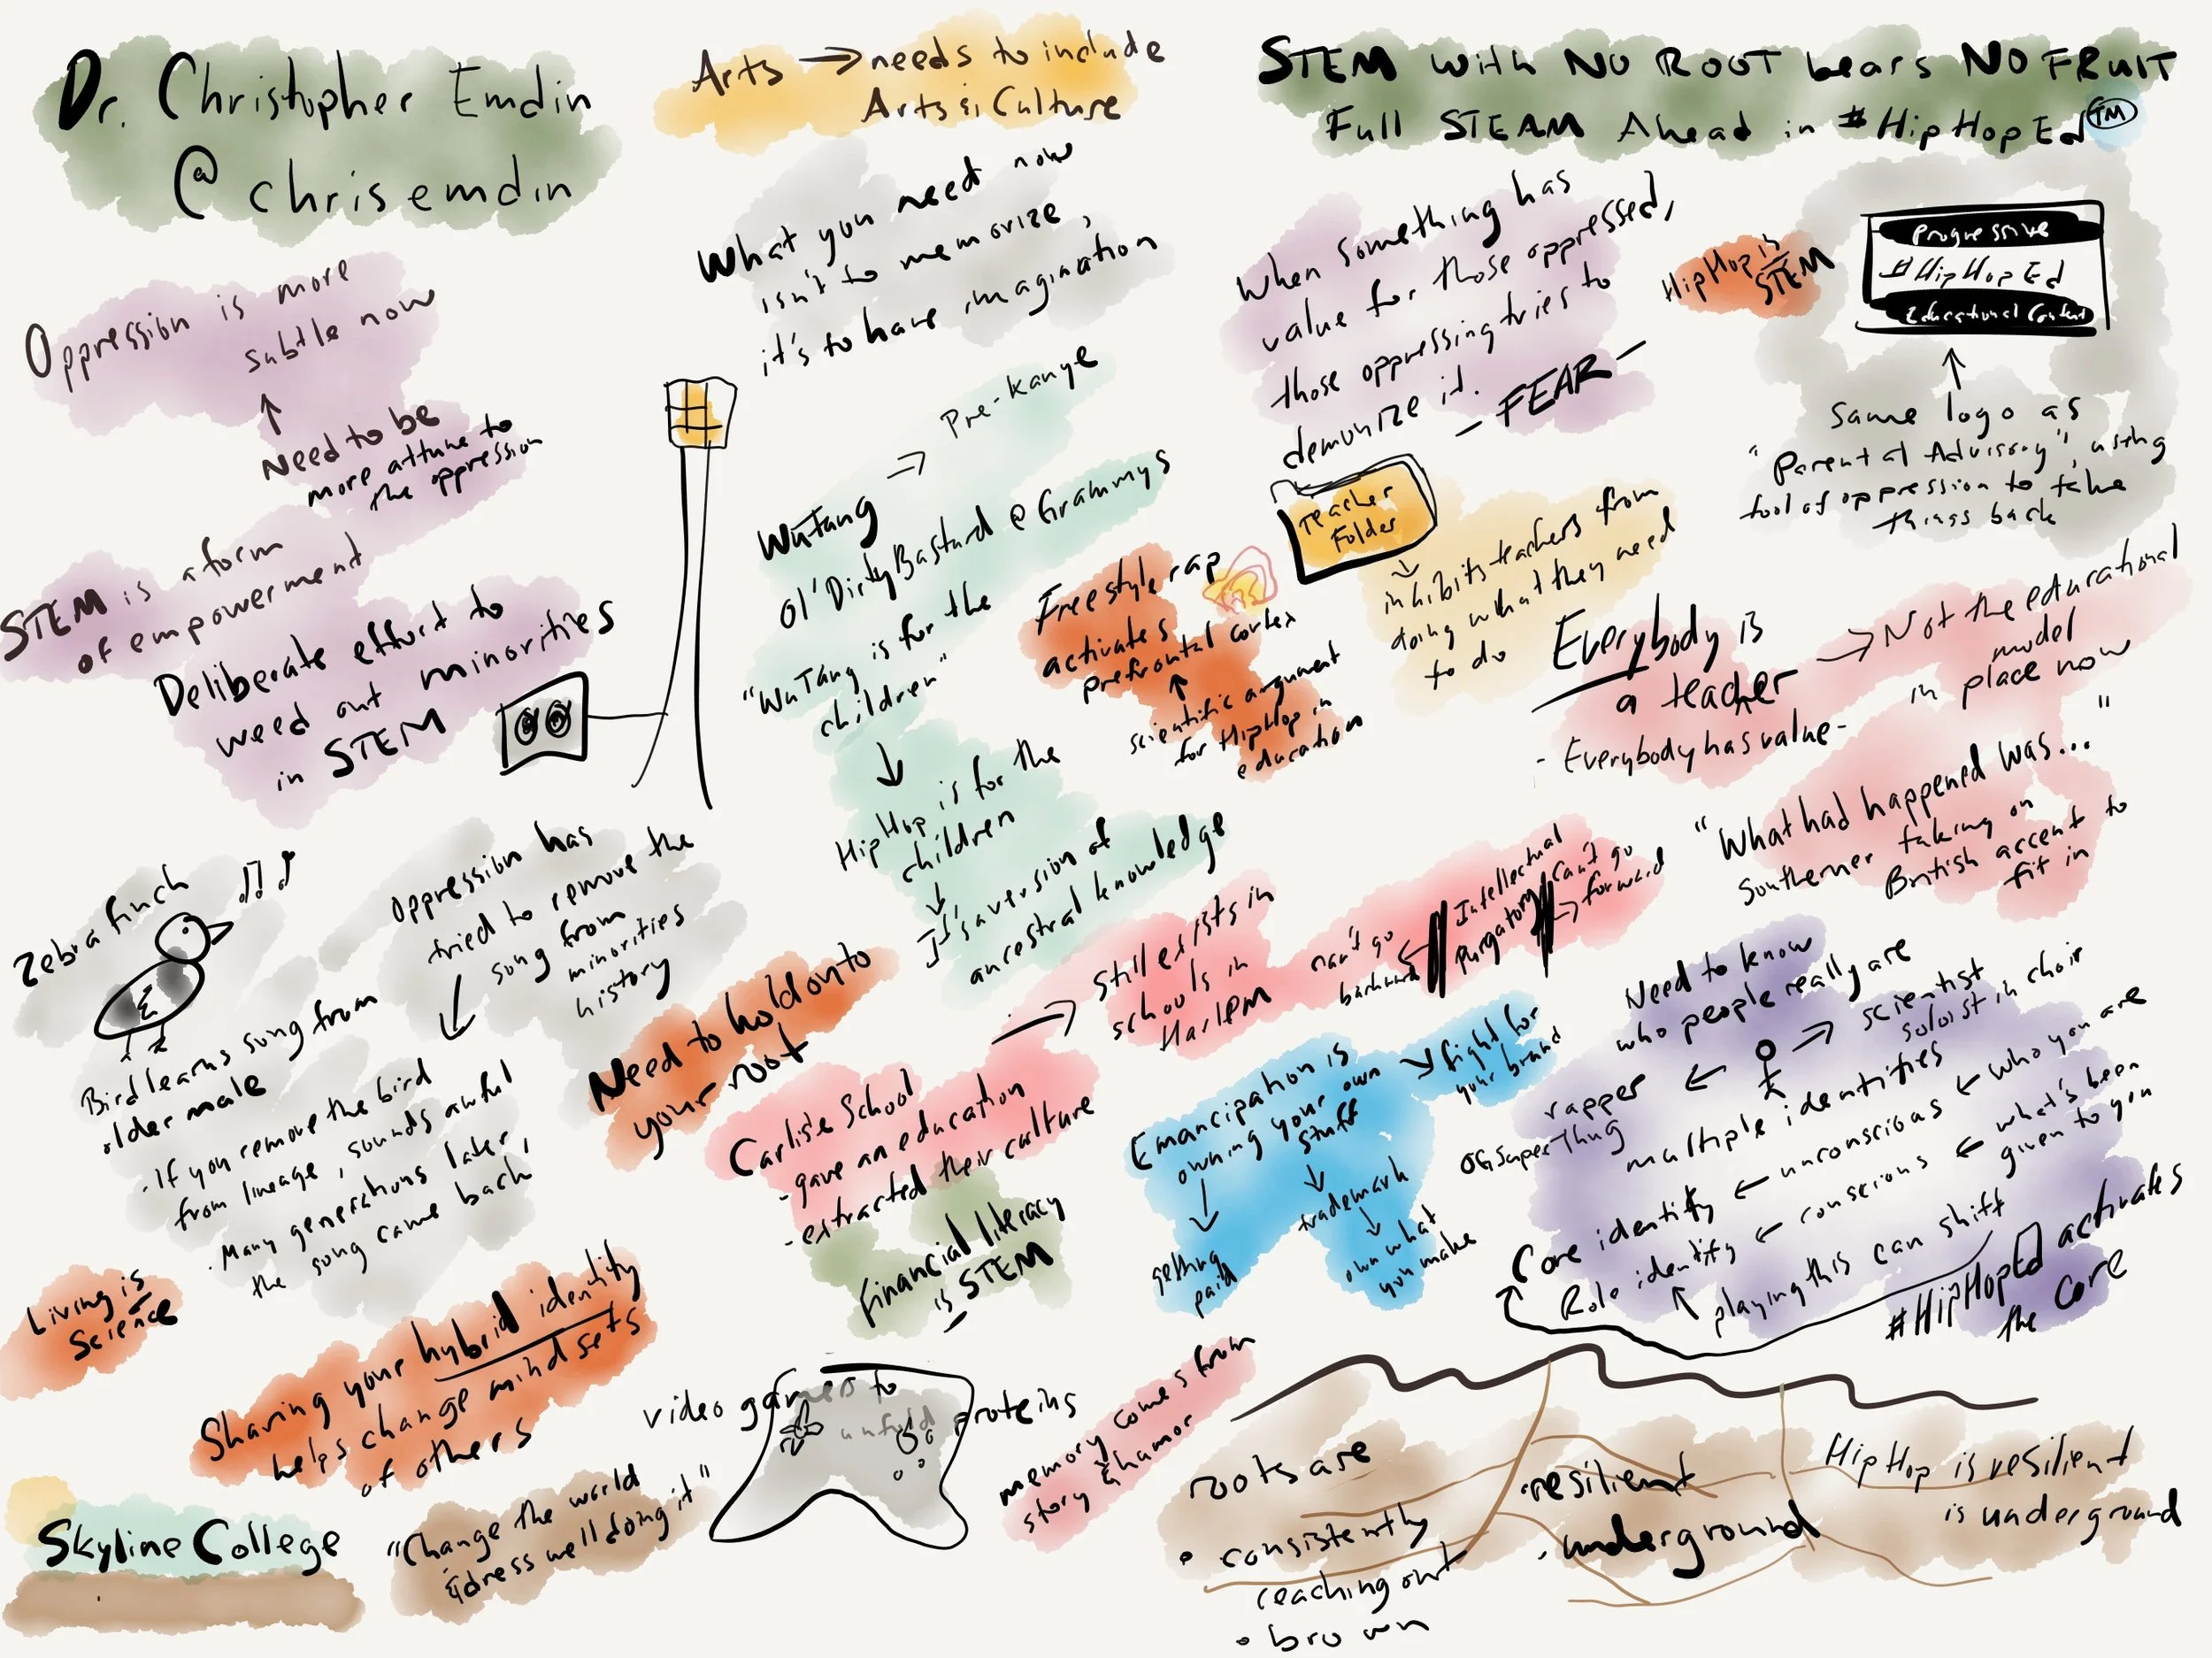 Dr. Christopher Emdin
@chrisemdin
Arts → needs to include
Arts & Culture
STEM with NO ROOT bears NO FRUIT
Full STEAM Ahead in #HipHopEd TM
Oppression is more
subtle now
↑
Need to be
more attune to
the oppression
STEM is a form
of empowerment
Deliberate effort to
weed out minorities
in STEM
What you need now
isn't to memorize,
it's to have imagination
WuTang → Pre-Kanye
Ol' Dirty Bastard @ Grammys
"WuTang is for the
children"
↓
HipHop is for the
children
↓
It's a version of
ancestral knowledge
When something has
value for those oppressed,
those oppressing tries to
demonize it.
- FEAR -
HipHop is
STEM
Progressive
#HipHopEd
Educational Content
↑
Same logo as
"Parental Advisory", using
tool of oppression to take
things back
Teacher
Folder
↓
inhibits teachers from
doing what they need
to do
Freestyle rap
activates
prefrontal cortex
↑
scientific argument
for HipHop in
education
Everybody is
a teacher
- Everybody has value -
→ Not the educational
model
in place now
"What had happened was..."
Southerner taking on
British accent to
fit in
Zebra finch
Bird learns song from
older male
· If you remove the bird
from lineage, sounds awful
· Many generations later,
the song came back
Oppression has
tried to remove the
song from
minorities
history
↓
Need to hold onto
your root
Carlisle School
- gave an education
- extracted their culture
→ still exists in
schools in
Harlem
can't go
backward
←
Intellectual
Purgatory
can't go
→ forward
Emancipation is
owning your own
stuff
→ fight for
your brand
↓
getting
paid
↓
trademark
↓
own what
you make
Need to know
who people really are
rapper ← → scientist
OG Super Thug
soloist in choir
multiple identities
Core identity ← unconscious ← who you are
Role identity ← conscious ← what's been
given to you
↑ playing this can shift
#HipHopEd activates
the core
Financial literacy
is STEM
Living is
Science
Sharing your hybrid identity
helps change mindsets
of others
video games to
unfold proteins
memory comes from
story & humor
Skyline College
"Change the world
& dress well doing it"
roots are
• consistently
reaching out
• brown
· resilient
· underground
HipHop is resilient
is underground